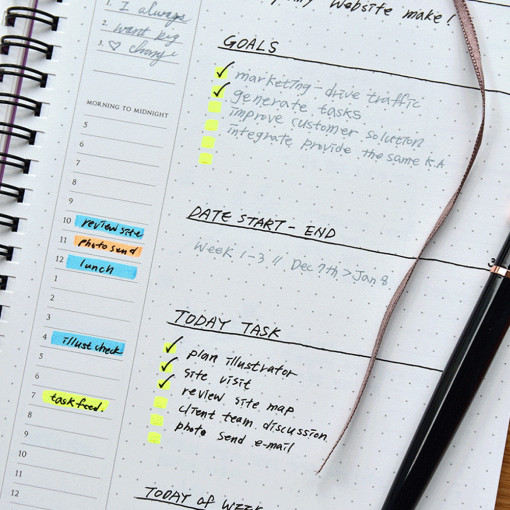 1. I always
2. want big
3. ♡ change
MORNING TO MIDNIGHT
5
6
7
8
9
10 review site
11 photo send
12 lunch
1
2
3
4 illust check
5
6
7 task feed.
8
9
10
11
12
website make!
GOALS
✓ marketing - drive traffic
✓ generate tasks
improve customer solution
integrate provide the same K.A
DATE START - END
Week 1-3 // Dec 7th > Jan 8
TODAY TASK
✓ plan illustrator
✓ site visit
✓ review site map
client team discussion
photo send e-mail
TODAY of WEEK